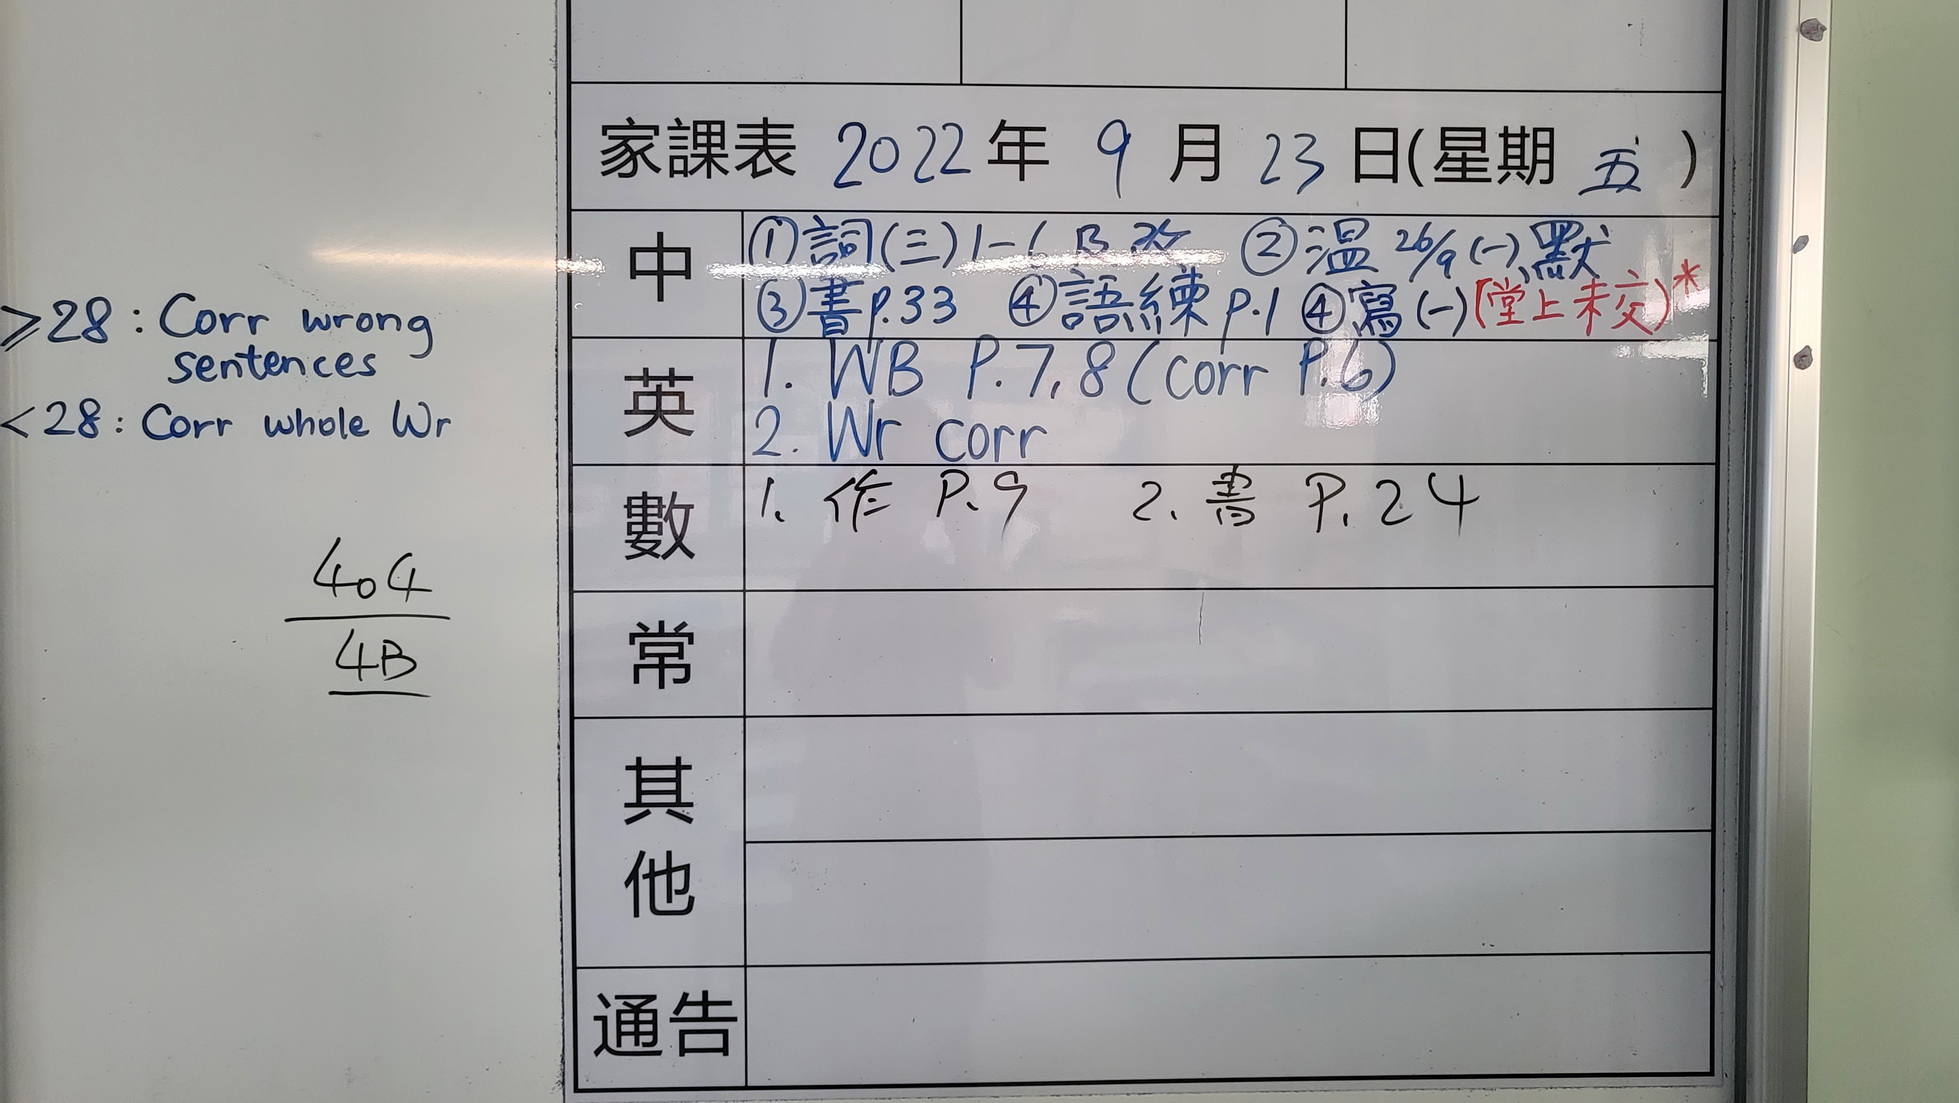 家課表 2022年 9月 23日(星期 五 )
中
①詞(三)1-6 B 改 ②溫 26/9 (一)默
③書p.33 ④語練 p.1 ④寫(一)(堂上未交)*
英
1. WB P.7,8 (corr P.6)
2. Wr corr
數
1. 作 P.9 2. 書 P.24
常
其他
通告
≥28: Corr wrong
sentences
<28: Corr whole Wr
404
4B